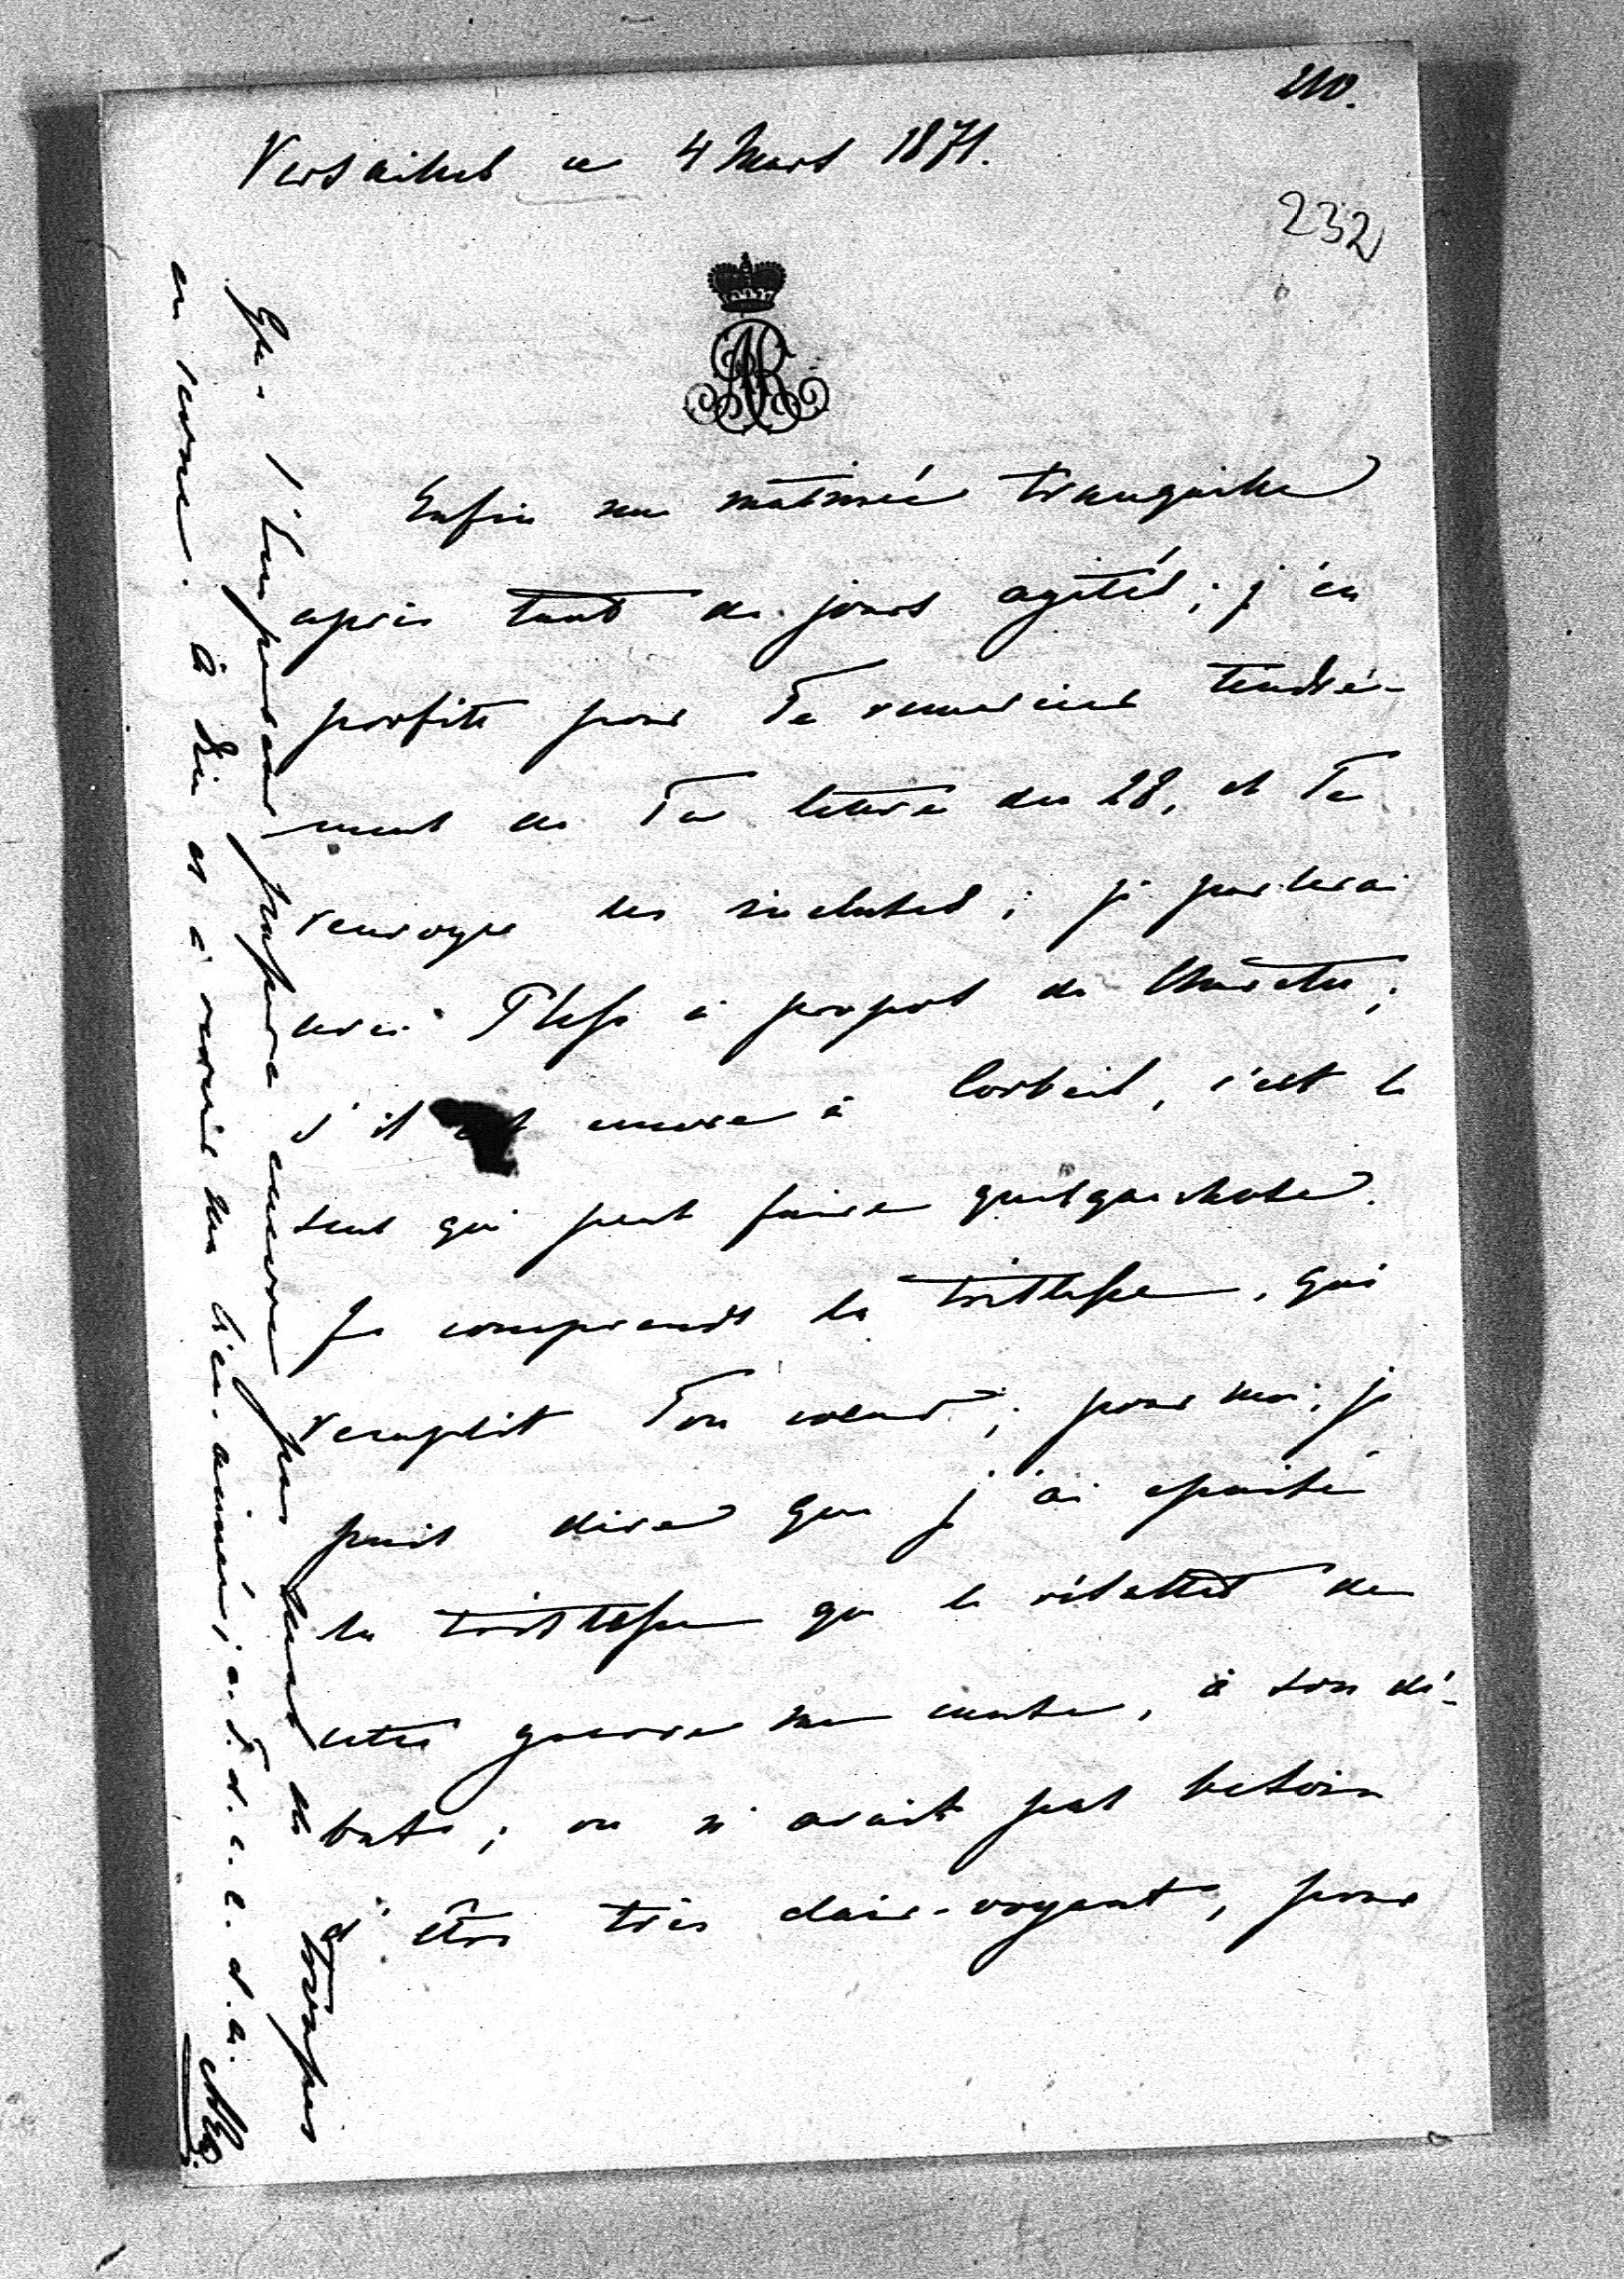 210.
Versailles ce 4 Mars 1871.
232
AR
Enfin une matinée tranquille
après tant de jours agités; j'en
porfite pour Te remercier tendre-
ment de Ta lettre du 28, et Te
renvoye les incluses; je parlerai
avec Pless à propos de
s'il est encore à Corbeil, c'est le
seul qui peut faire quelque chose.
Je comprends la tristesse, qui
remplit Ton coeur; pour moi, je
puis dire que j'ai épuisé
la tristesse que le résultat de
cette guerre me cause, à son dé-
but; on n'avait pas besoin
d'être très clair-voyant, pour
que l'Empereur passera encore par
en revue. à Dieu et à revoir ma bien-aimée; a. T. d. c. e. d. a.